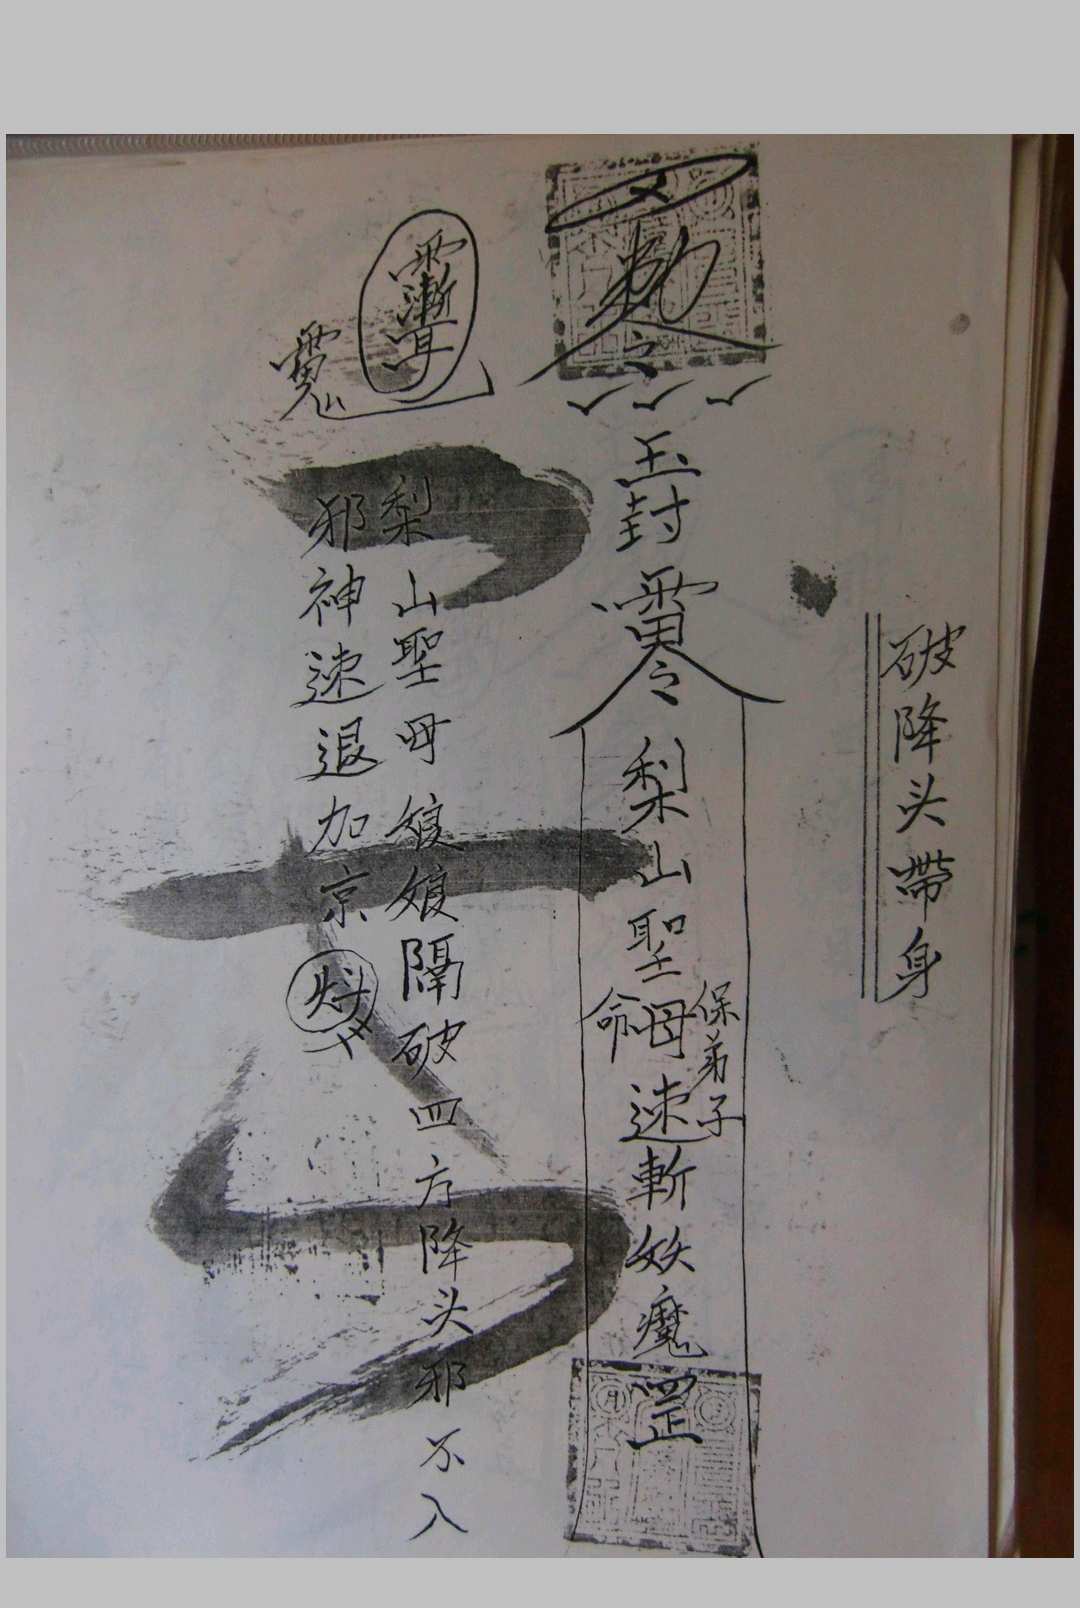 破降头帶身
敕令
玉封
令
梨山聖母速斬妖魔罡
保弟子
命
梨山聖母娘娘隔破四方降头邪不入
邪神速退加京